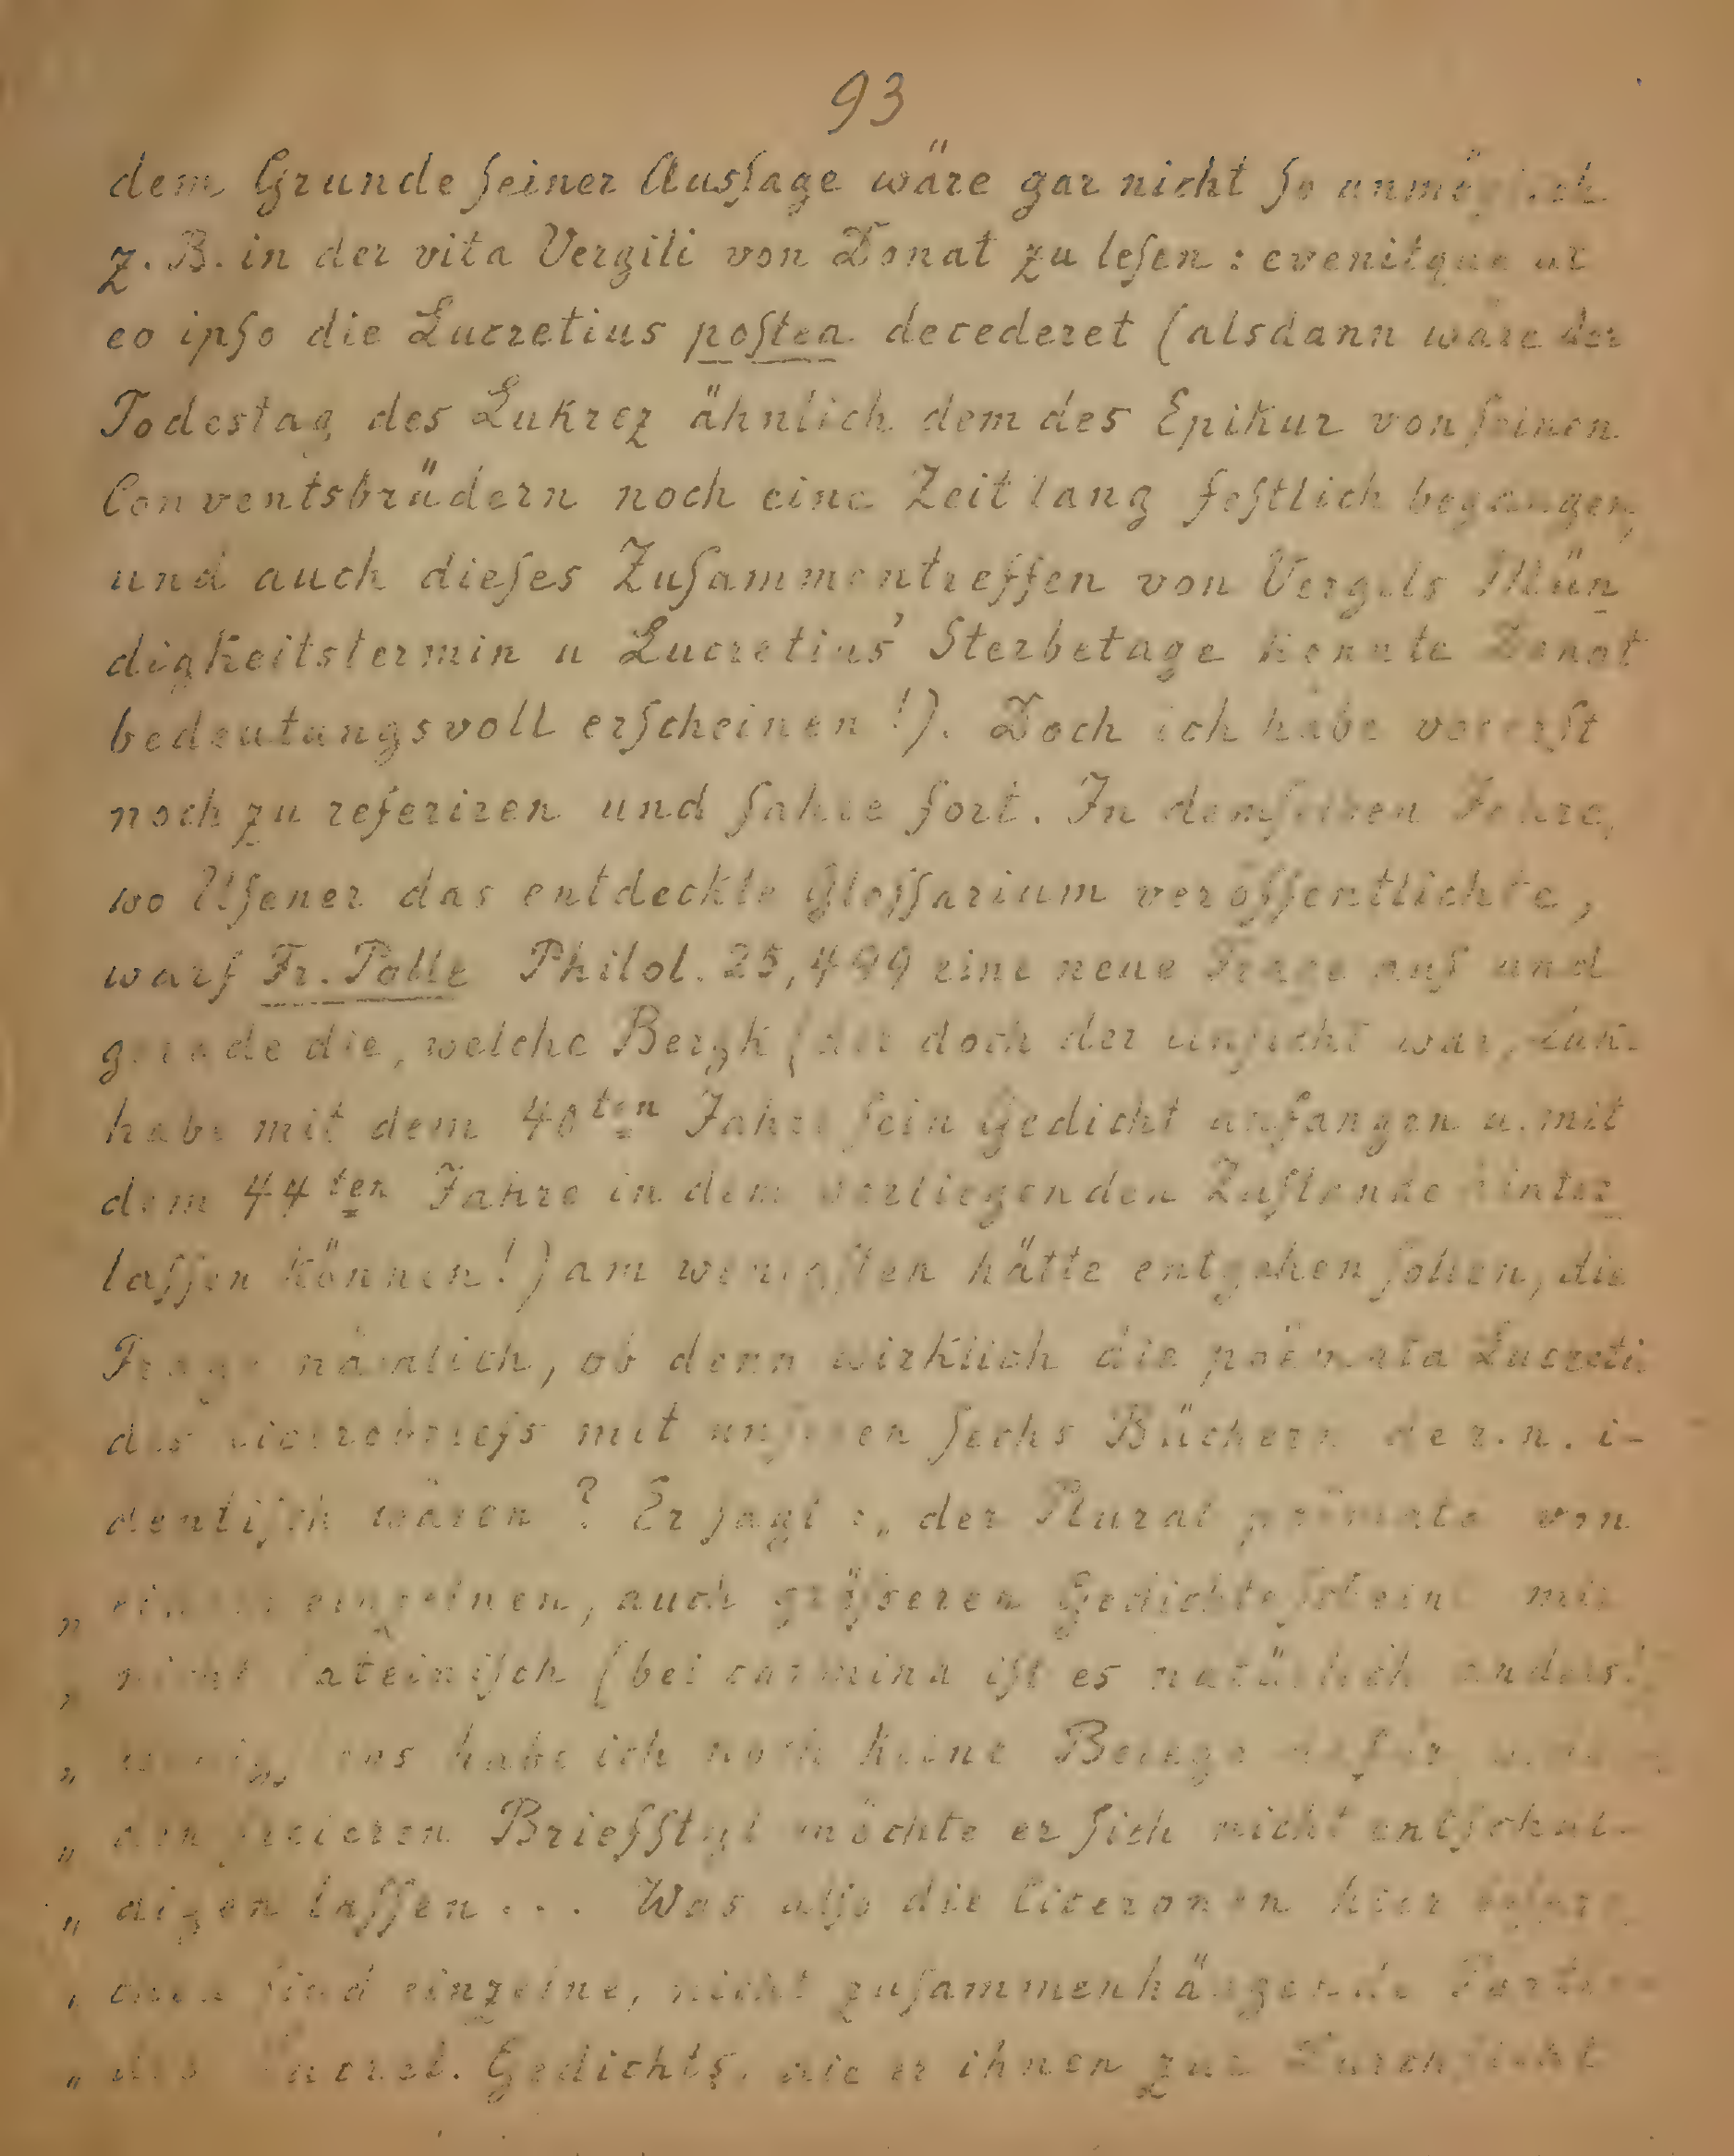 93
dem Grunde ſeiner Ausſage wäre gar nicht ſo unmöglich
z. B. in der vita Vergili von Donat zu leſen: evenitque ut
eo ipſo die Lucretius poſtea decederet (alsdann wäre der
Todestag des Lukrez ähnlich dem des Epikur von ſeinen
Conventsbrüdern noch eine Zeit lang feſtlich begangen,
und auch dieſes Zuſammentreffen von Vergils Mün
digkeitstermin u Lucretius' Sterbetage konnte Donat
bedeutungsvoll erſcheinen!). Doch ich habe vorerſt
noch zu referiren und fahre fort. In demſelben Jahre,
wo Uſener das entdeckte Gloſſarium veröffentlichte,
warf Fr. Polle Philol. 25, 499 eine neue Frage auf und
gerade die, welche Bergk (der doch der Anſicht war,
habe mit dem 40ten Jahre ſein Gedicht anfangen u. mit
dem 44ten Jahre in dem vorliegenden Zuſtande hinter
laſſen können!) am wenigſten hätte entgehen ſollen, die
Frage nämlich, ob denn wirklich die poëmata Lucreti
des Cicerobriefs mit unſeren ſechs Büchern de r. n. i-
dentiſch wären? Er ſagt: „der Plural poëmata von
„ einem einzelnen, auch gröſseren Gedichte ſcheint mir
„ nicht lateiniſch (bei carmina iſt es natürlich anders)
„ wenigſtens habe ich noch keine Belege dafür
„ den freieren Briefſtyl möchte er ſich nicht entſchul-
„ digen laſſen... Was alſo die Ciceronen hier
„ ſind einzelne, nicht zuſammenhängende
„ des Lucret. Gedichts, wie er ihnen zur Durchſicht